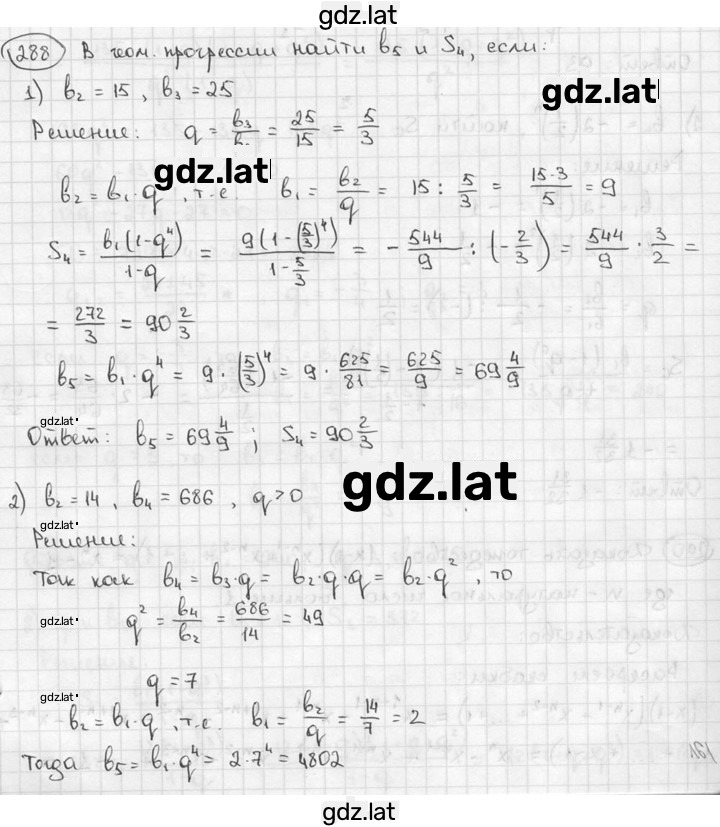 gdz.lat
288 В геом. прогрессии найти b₅ и S₄, если:
1) b₂ = 15, b₃ = 25
gdz.lat
Решение: q = b₃/b. = 25/15 = 5/3
gdz.lat
b₂ = b₁·q, т.е. b₁ = b₂/q = 15 : 5/3 = 15·3/5 = 9
S₄ = b₁(1-q⁴)/1-q = 9(1-(5/3)⁴)/1-5/3 = -544/9 : (-2/3) = 544/9 · 3/2 =
= 272/3 = 90 2/3
b₅ = b₁·q⁴ = 9·(5/3)⁴ = 9·625/81 = 625/9 = 69 4/9
gdz.lat
Ответ: b₅ = 69 4/9; S₄ = 90 2/3
gdz.lat
2) b₂ = 14, b₄ = 686, q > 0
gdz.lat
Решение:
Так как b₄ = b₃·q = b₂·q·q = b₂·q², то
gdz.lat
q² = b₄/b₂ = 686/14 = 49
q = 7
gdz.lat
b₂ = b₁·q, т.е. b₁ = b₂/q = 14/7 = 2
Тогда b₅ = b₁·q⁴ = 2·7⁴ = 4802
gdz.lat